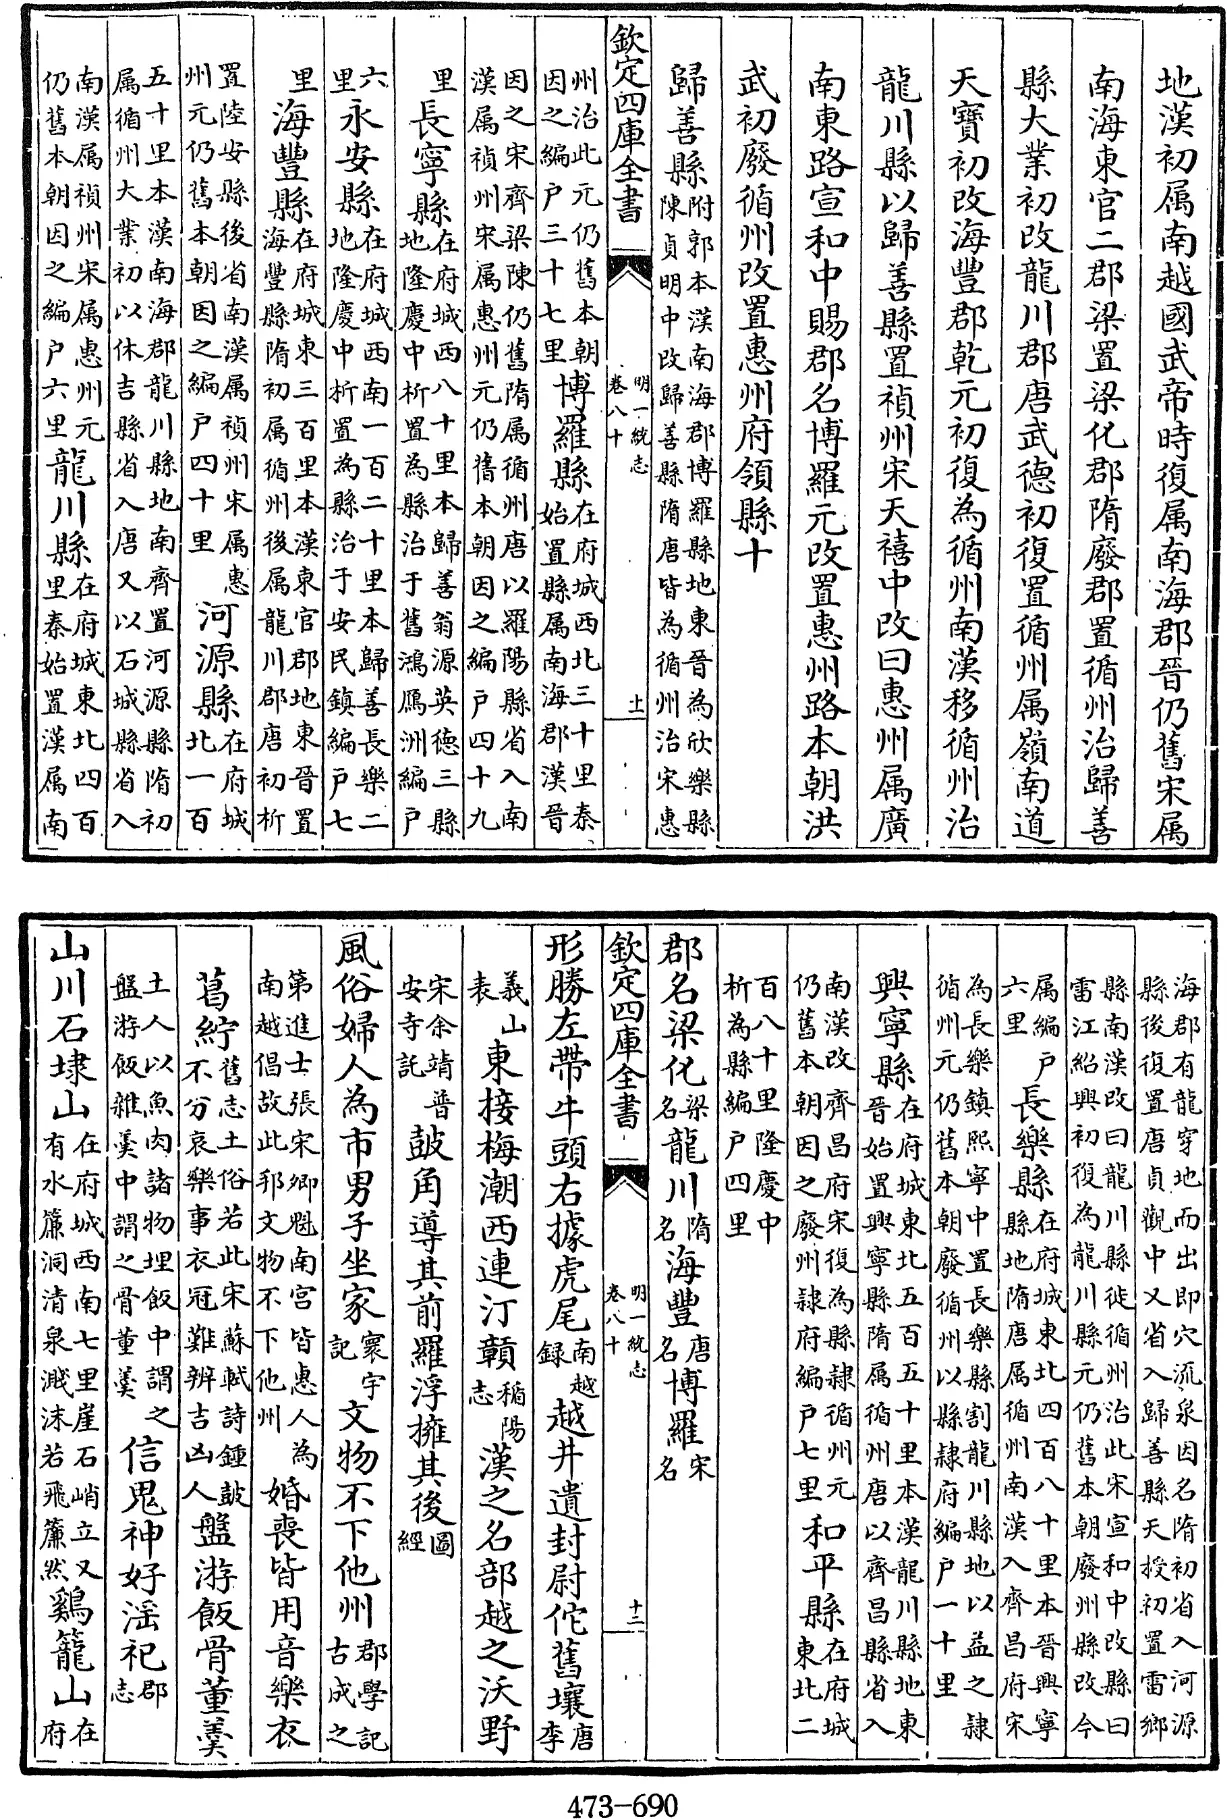 地漢初属南越國武帝時復属南海郡晉仍舊宋属
南海東官二郡梁置梁化郡隋廢郡置循州治歸善
縣大業初改龍川郡唐武德初復置循州属嶺南道
天寶初改海豐郡乾元初復為循州南漢移循州治
龍川縣以歸善縣置禎州宋天禧中改曰惠州属廣
南東路宣和中賜郡名博羅元改置惠州路本朝洪
武初廢循州改置惠州府領縣十
歸善縣附郭本漢南海郡博羅縣地東晉為欣樂縣陳貞明中改歸善縣隋唐皆為循州治宋惠
欽定四庫全書 明一統志 卷八十 十一
州治此元仍舊本朝因之編户三十七里博羅縣在府城西北三十里秦始置縣属南海郡漢晉
因之宋齊梁陳仍舊隋属循州唐以羅陽縣省入南漢属禎州宋属惠州元仍舊本朝因之編户四十九
里長寧縣在府城西八十里本歸善翁源英德三縣地隆慶中析置為縣治于舊鴻鴈洲編户
六里永安縣在府城西南一百二十里本歸善長樂二地隆慶中析置為縣治于安民鎮編户七
里海豐縣在府城東三百里本漢東官郡地東晉置海豐縣隋初属循州後属龍川郡唐初析
置陸安縣後省南漢属禎州宋属惠州元仍舊本朝因之編户四十里河源縣在府城北一百
五十里本漢南海郡龍川縣地南齊置河源縣隋初属循州大業初以休吉縣省入唐又以石城縣省入
南漢属禎州宋属惠州元仍舊本朝因之編户六里龍川縣在府城東北四百里秦始置漢属南
海郡有龍穿地而出即穴流泉因名隋初省入河源縣後復置唐貞觀中又省入歸善縣天授初置雷鄉
縣南漢改曰龍川縣徙循州治此宋宣和中改縣曰雷江紹興初復為龍川縣元仍舊本朝廢州縣改今
属編户六里長樂縣在府城東北四百八十里本晉興寧縣地隋唐属循州南漢入齊昌府宋
為長樂鎮熙寧中置長樂縣割龍川縣地以益之隷循州元仍舊本朝廢循州以縣隷府編户一十里
興寧縣在府城東北五百五十里本漢龍川縣地東晉始置興寧縣隋属循州唐以齊昌縣省入
南漢改齊昌府宋復為縣隷循州元仍舊本朝因之廢州隷府編户七里和平縣在府城東北二
百八十里隆慶中析為縣編户四里
郡名梁化梁名龍川隋名海豐唐名博羅宋名
欽定四庫全書 明一統志 卷八十 十二
形勝左帶牛頭右據虎尾南越録越井遺封尉佗舊壤唐李
義山表東接梅潮西連汀贛循陽志漢之名部越之沃野
宋余靖普安寺記鼓角導其前羅浮擁其後圖經
風俗婦人為市男子坐家寰宇記文物不下他州郡學記古成之
第進士張宋卿魁南宮皆惠人為南越倡故此邦文物不下他州婚喪皆用音樂衣
葛紵舊志土俗若此宋蘇軾詩鍾鼓不分哀樂事衣冠難辨吉凶人盤游飯骨董羹
土人以魚肉諸物埋飯中謂之盤游飯雜羹中謂之骨董羹信鬼神好淫祀郡志
山川石埭山在府城西南七里崖石峭立又有水簾洞清泉濺沫若飛簾然鷄籠山在府
473-690